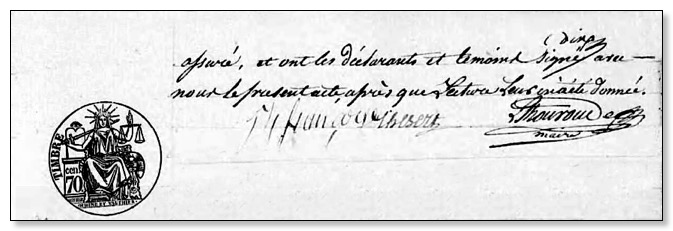 assuré, et ont les déclarants et temoins signé avec
nous le present acte, après que Lecture Leur en a été donnée.
maire
TIMBRE
cent.
70